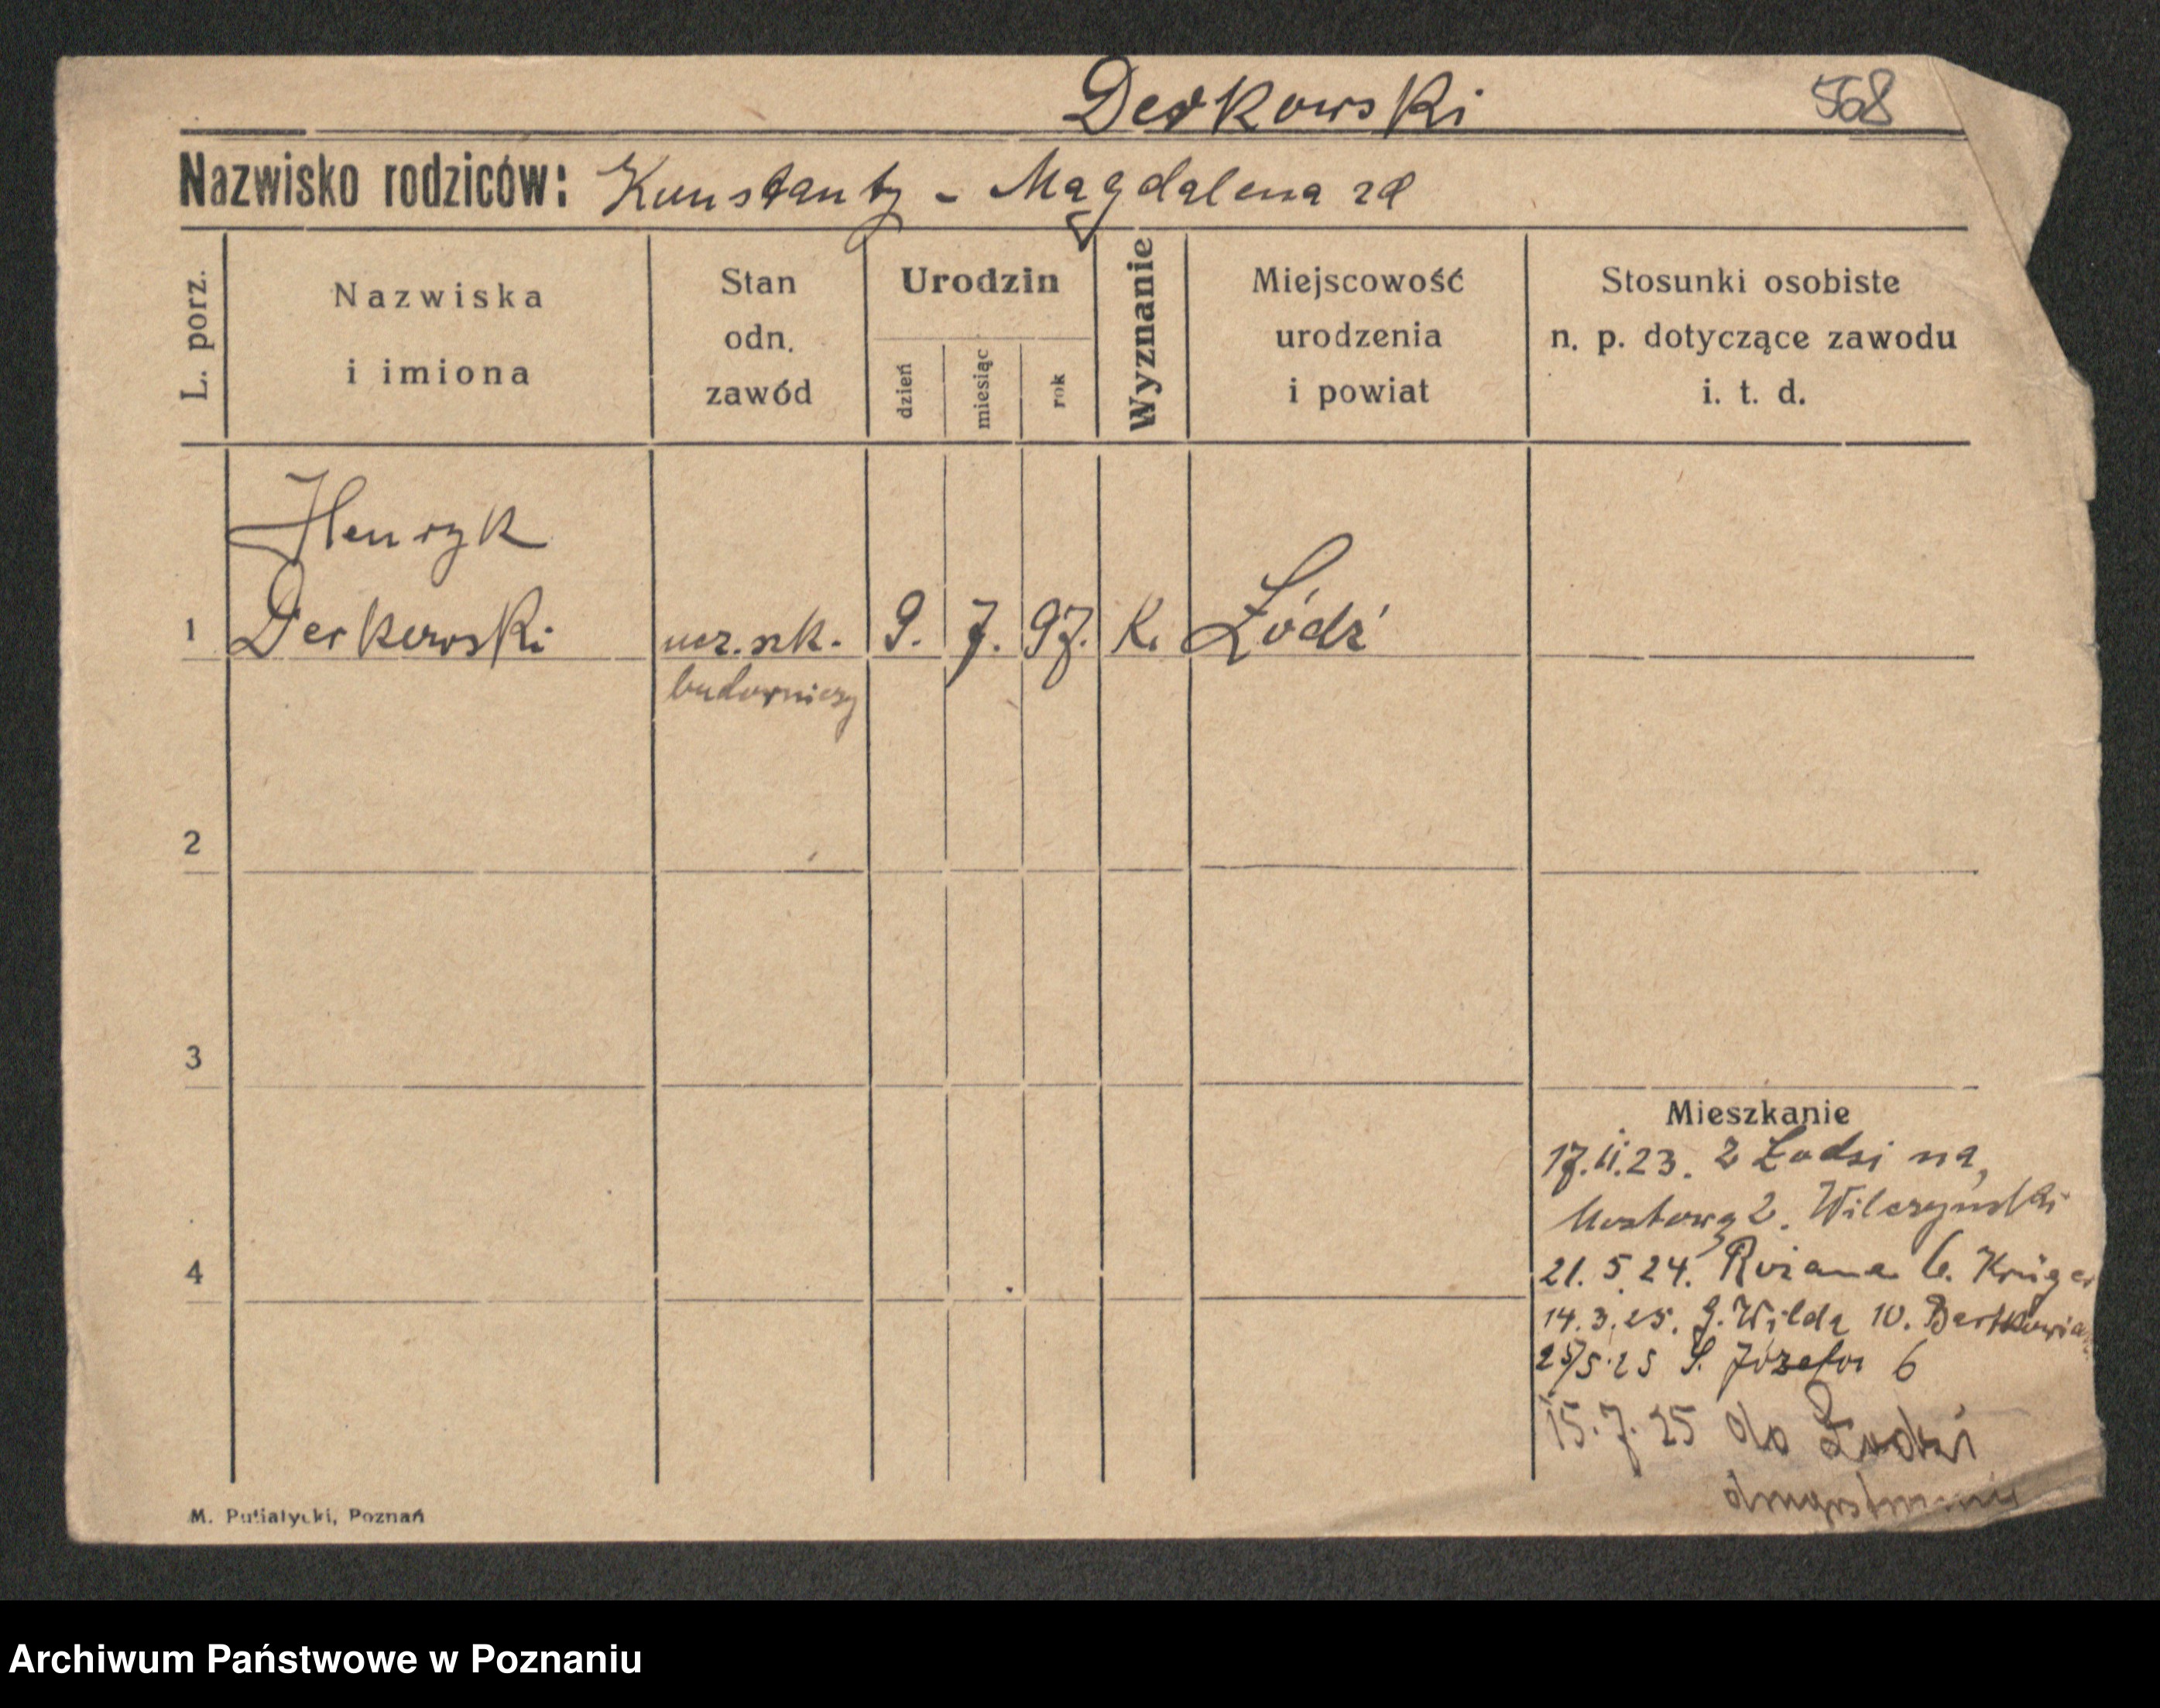 Derkowski 568
Nazwisko rodziców: Konstanty - Magdalena zd
L. porz.
Nazwiska
i imiona
Stan
odn.
zawód
Urodzin
dzień
miesiąc
rok
Wyznanie
Miejscowość
urodzenia
i powiat
Stosunki osobiste
n. p. dotyczące zawodu
i. t. d.
Henryk
1 Derkowski ucz. szk. 9. 7. 97. K. Łódź
budowniczy
2
3
4
Mieszkanie
17.11.23. z Łodzi na
Mostową 2. Wilczyński
21. 5 24. Różana 6. Krüger
14. 3. 25. G. Wilda 10. Bartkowiak
25/5 25 S. Józefa 6
15. 7. 25 do Łodzi
M. Putiatycki, Poznań
Archiwum Państwowe w Poznaniu